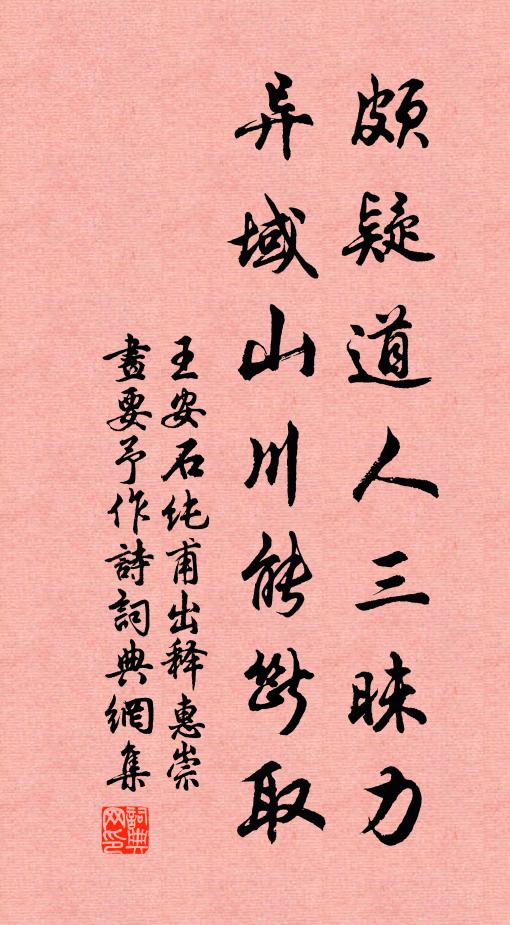 颇疑道人三昧力
异域山川能断取
王安石纯甫出释惠崇
畫要予作詩詞典網集
詞典网印